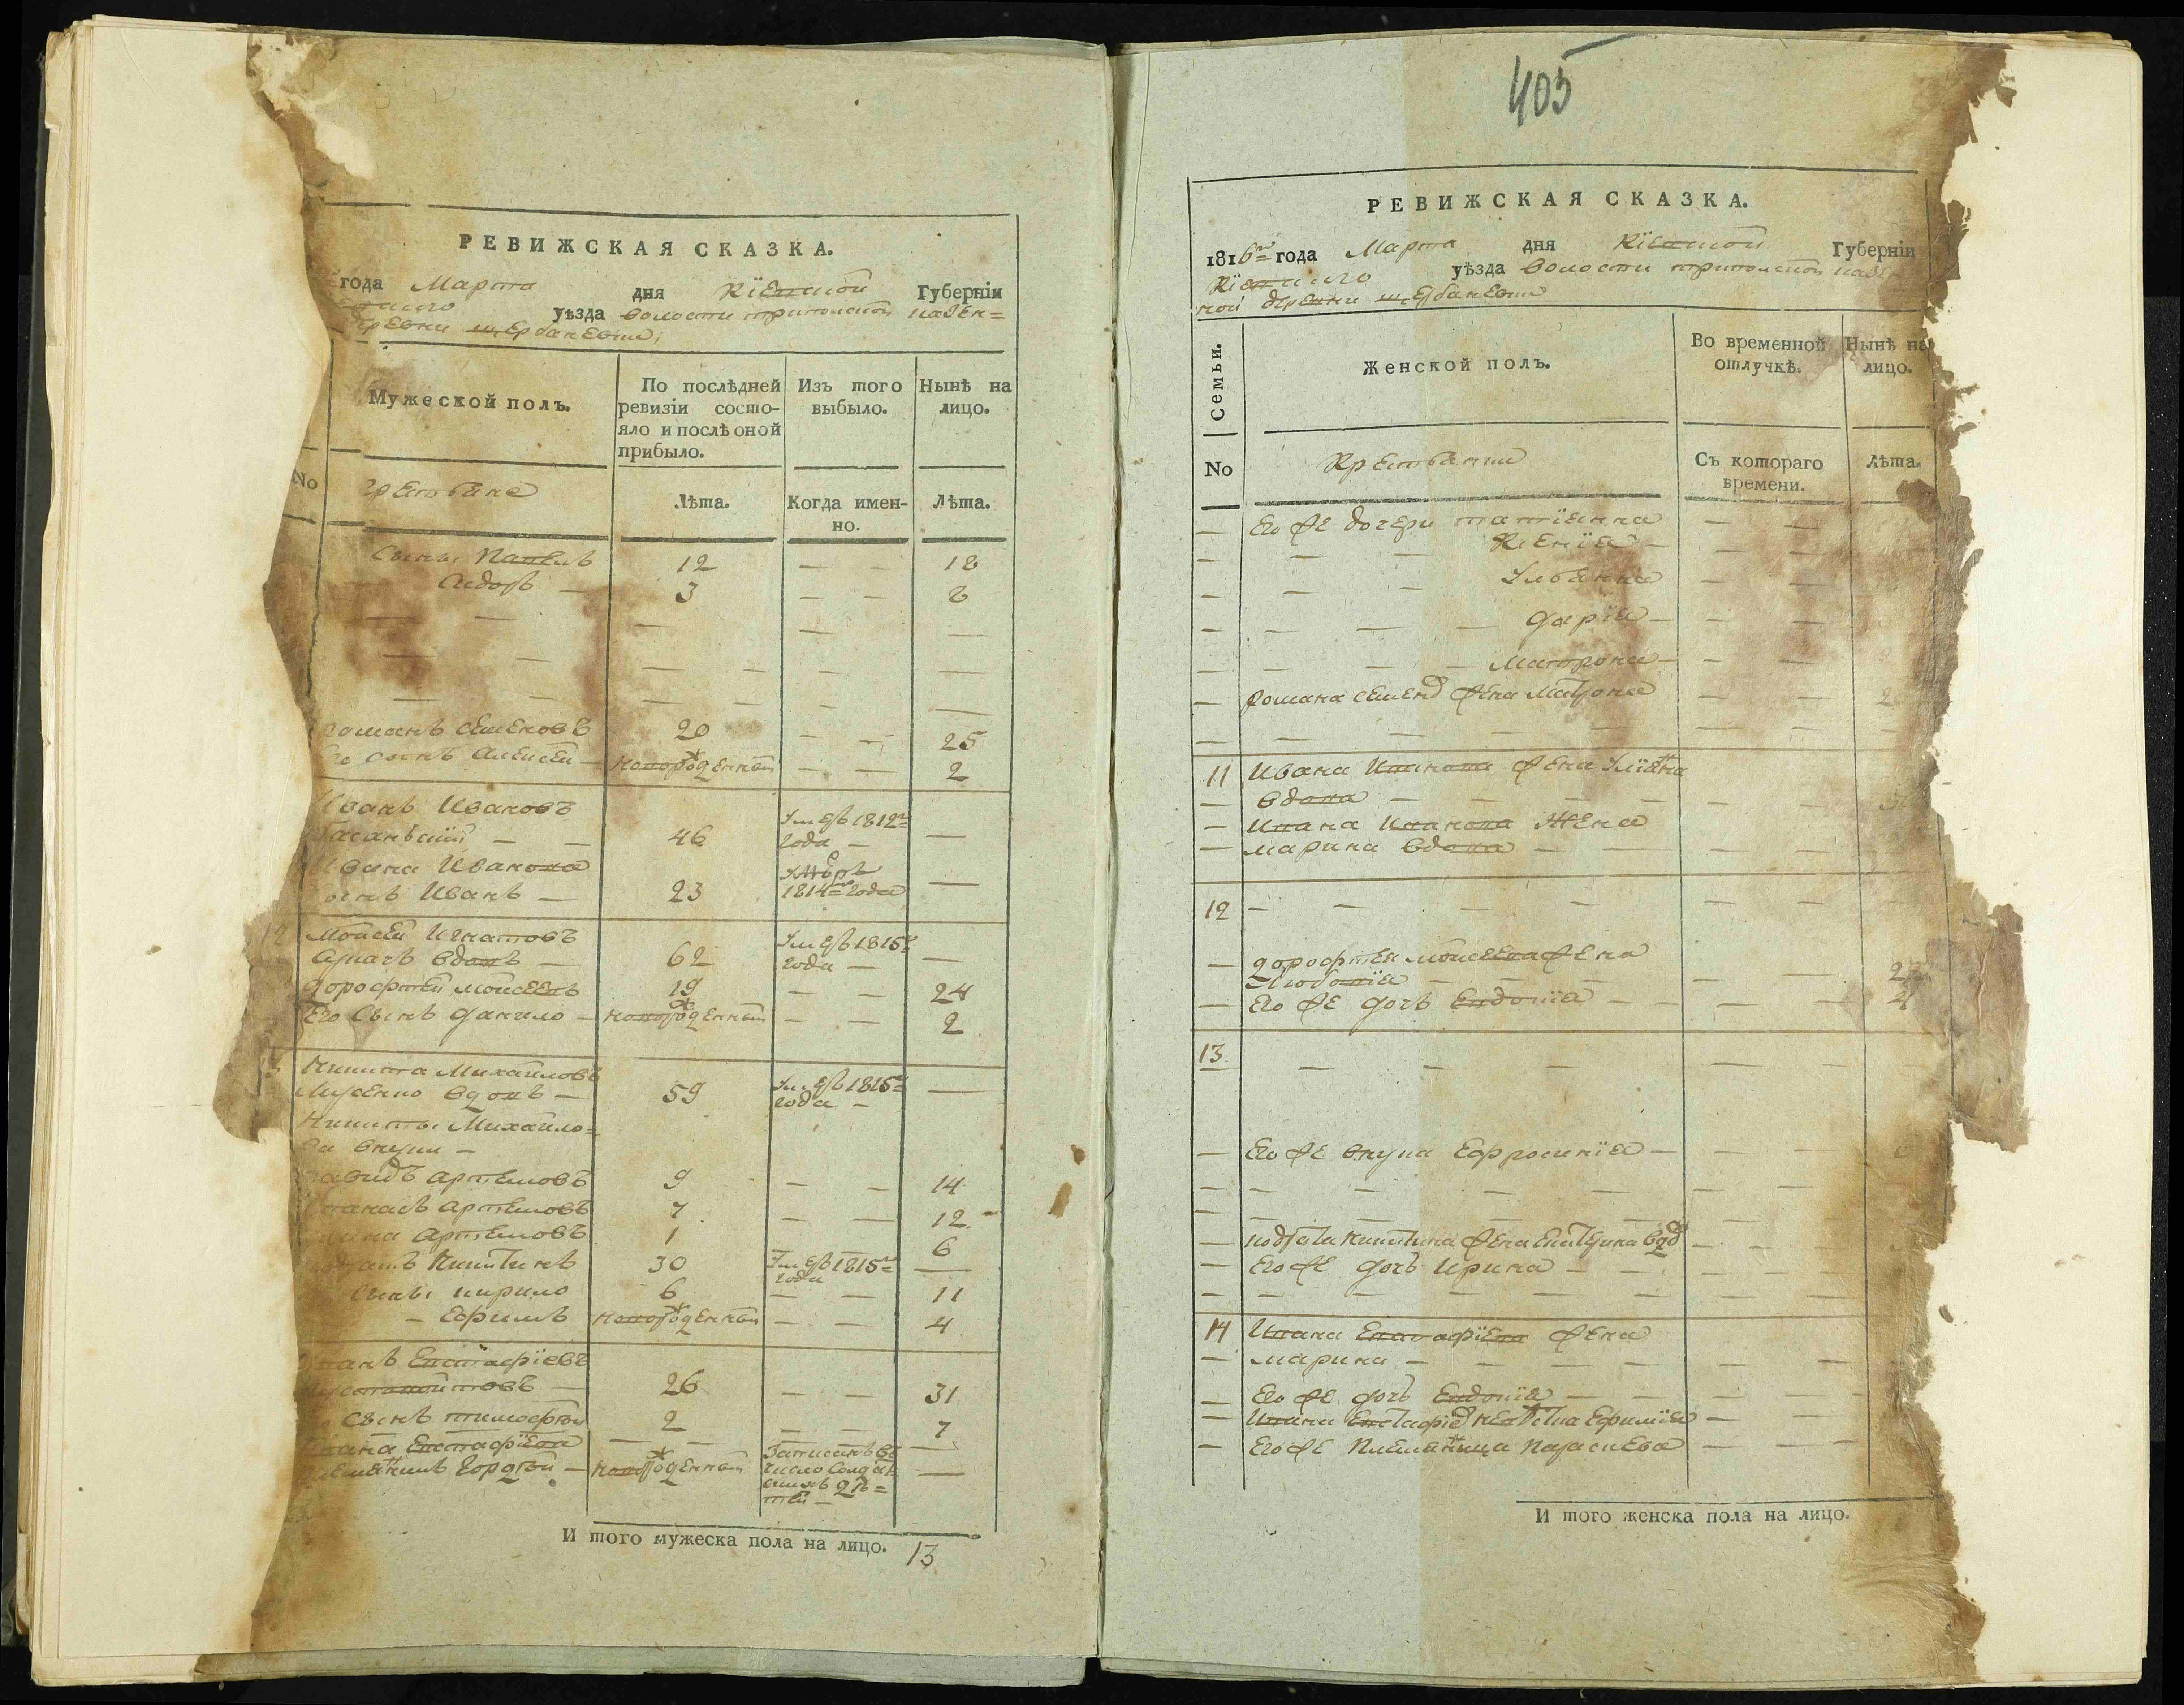 405
РЕВИЖСКАЯ СКАЗКА.
года Марта дня Кіевской Губерніи
уѣзда волости трипольской казен=
деревни щербаневки,
Мужеской полъ.
По послѣдней
ревизіи состо-
яло и послѣ оной
прибыло.
Изъ того
выбыло.
Нынѣ на
лицо.
No
Лѣта.
Когда имен-
но.
Лѣта.
Сынъ Павелъ 12 — — 18
3 — — 8
романъ Семеновъ 20 — — 25
сынъ Алексѣй — новорожденный — — 2
Иванъ Ивановъ Умеръ 1812го
46 года — —
Ивана Иванова
сынъ Иванъ — 23 1814го года —
12 Моисей Игнатовъ Умеръ 1815го
вдовъ — 62 года — —
дорофтей моисеевъ 19 — — 24
Его Сынъ данило — новорожденный — — 2
13 Никита Михайловъ Умеръ 1815го
вдовъ — 59 года — —
Никиты Михайло=
ва внуки —
давидъ артемовъ 9 — — 14
артемовъ 7 — — 12
артемовъ 1 6
Никитинъ 30 Умеръ 1815го года —
Сынъ кирило 6 — — 11
— Ефимъ новорожденный — — 4
Иванъ Евстафіевъ
26 — — 31
Сынъ тимофтей 2 — — 7
Ивана Евстафіева — — Записанъ въ —
племянникъ Гордѣй — новорожденный число Солдат —
скихъ дѣ=
тей —
И того мужеска пола на лицо. 13
РЕВИЖСКАЯ СКАЗКА.
1816го года Марта дня Кіевской Губерніи
Кіевского уѣзда волости трипольской казен
ной деревни щербаневки
Семьи.
Женской полъ.
Во временной
отлучкѣ.
Нынѣ на
лицо.
No
Крестьянки
Съ котораго
времени.
Лѣта.
— Его же дочери татіянна — —
— — — Ксенія — — —
— — — Ульянна — —
— — — — дарія — — —
— — — — Матрона — — —
— романа Семенова жена Матрона — —
11 Ивана Иванова жена Уліяна
— вдова —
— Ивана Иванова Жена
— марина вдова —
12 — — — —
— дорофтея моисеева жена
Любовія — 27
— Его же дочь Евдокія — — — 4
13 — — —
— Его же внука Ефросинія — — —
— Никитина жена Екатерина вдова
— Его же дочь Ирина —
14 Ивана Евстафіева жена
— марина —
— Его же дочь Евдокія —
— Ивана Евстафіева невѣстка Ефимія —
— Его же Племянница Параскева — —
И того женска пола на лицо.